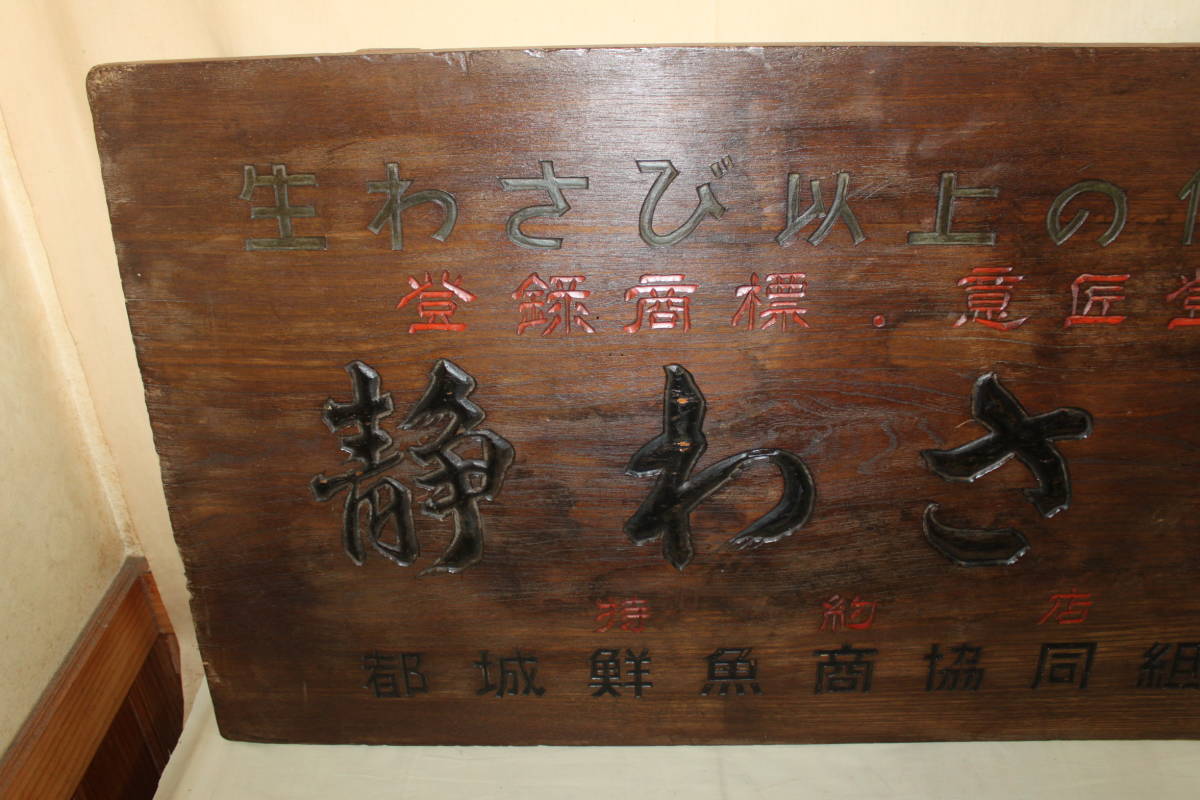 生わさび以上の
登録商標・意匠登
静わさ
特約店
都城鮮魚商協同組